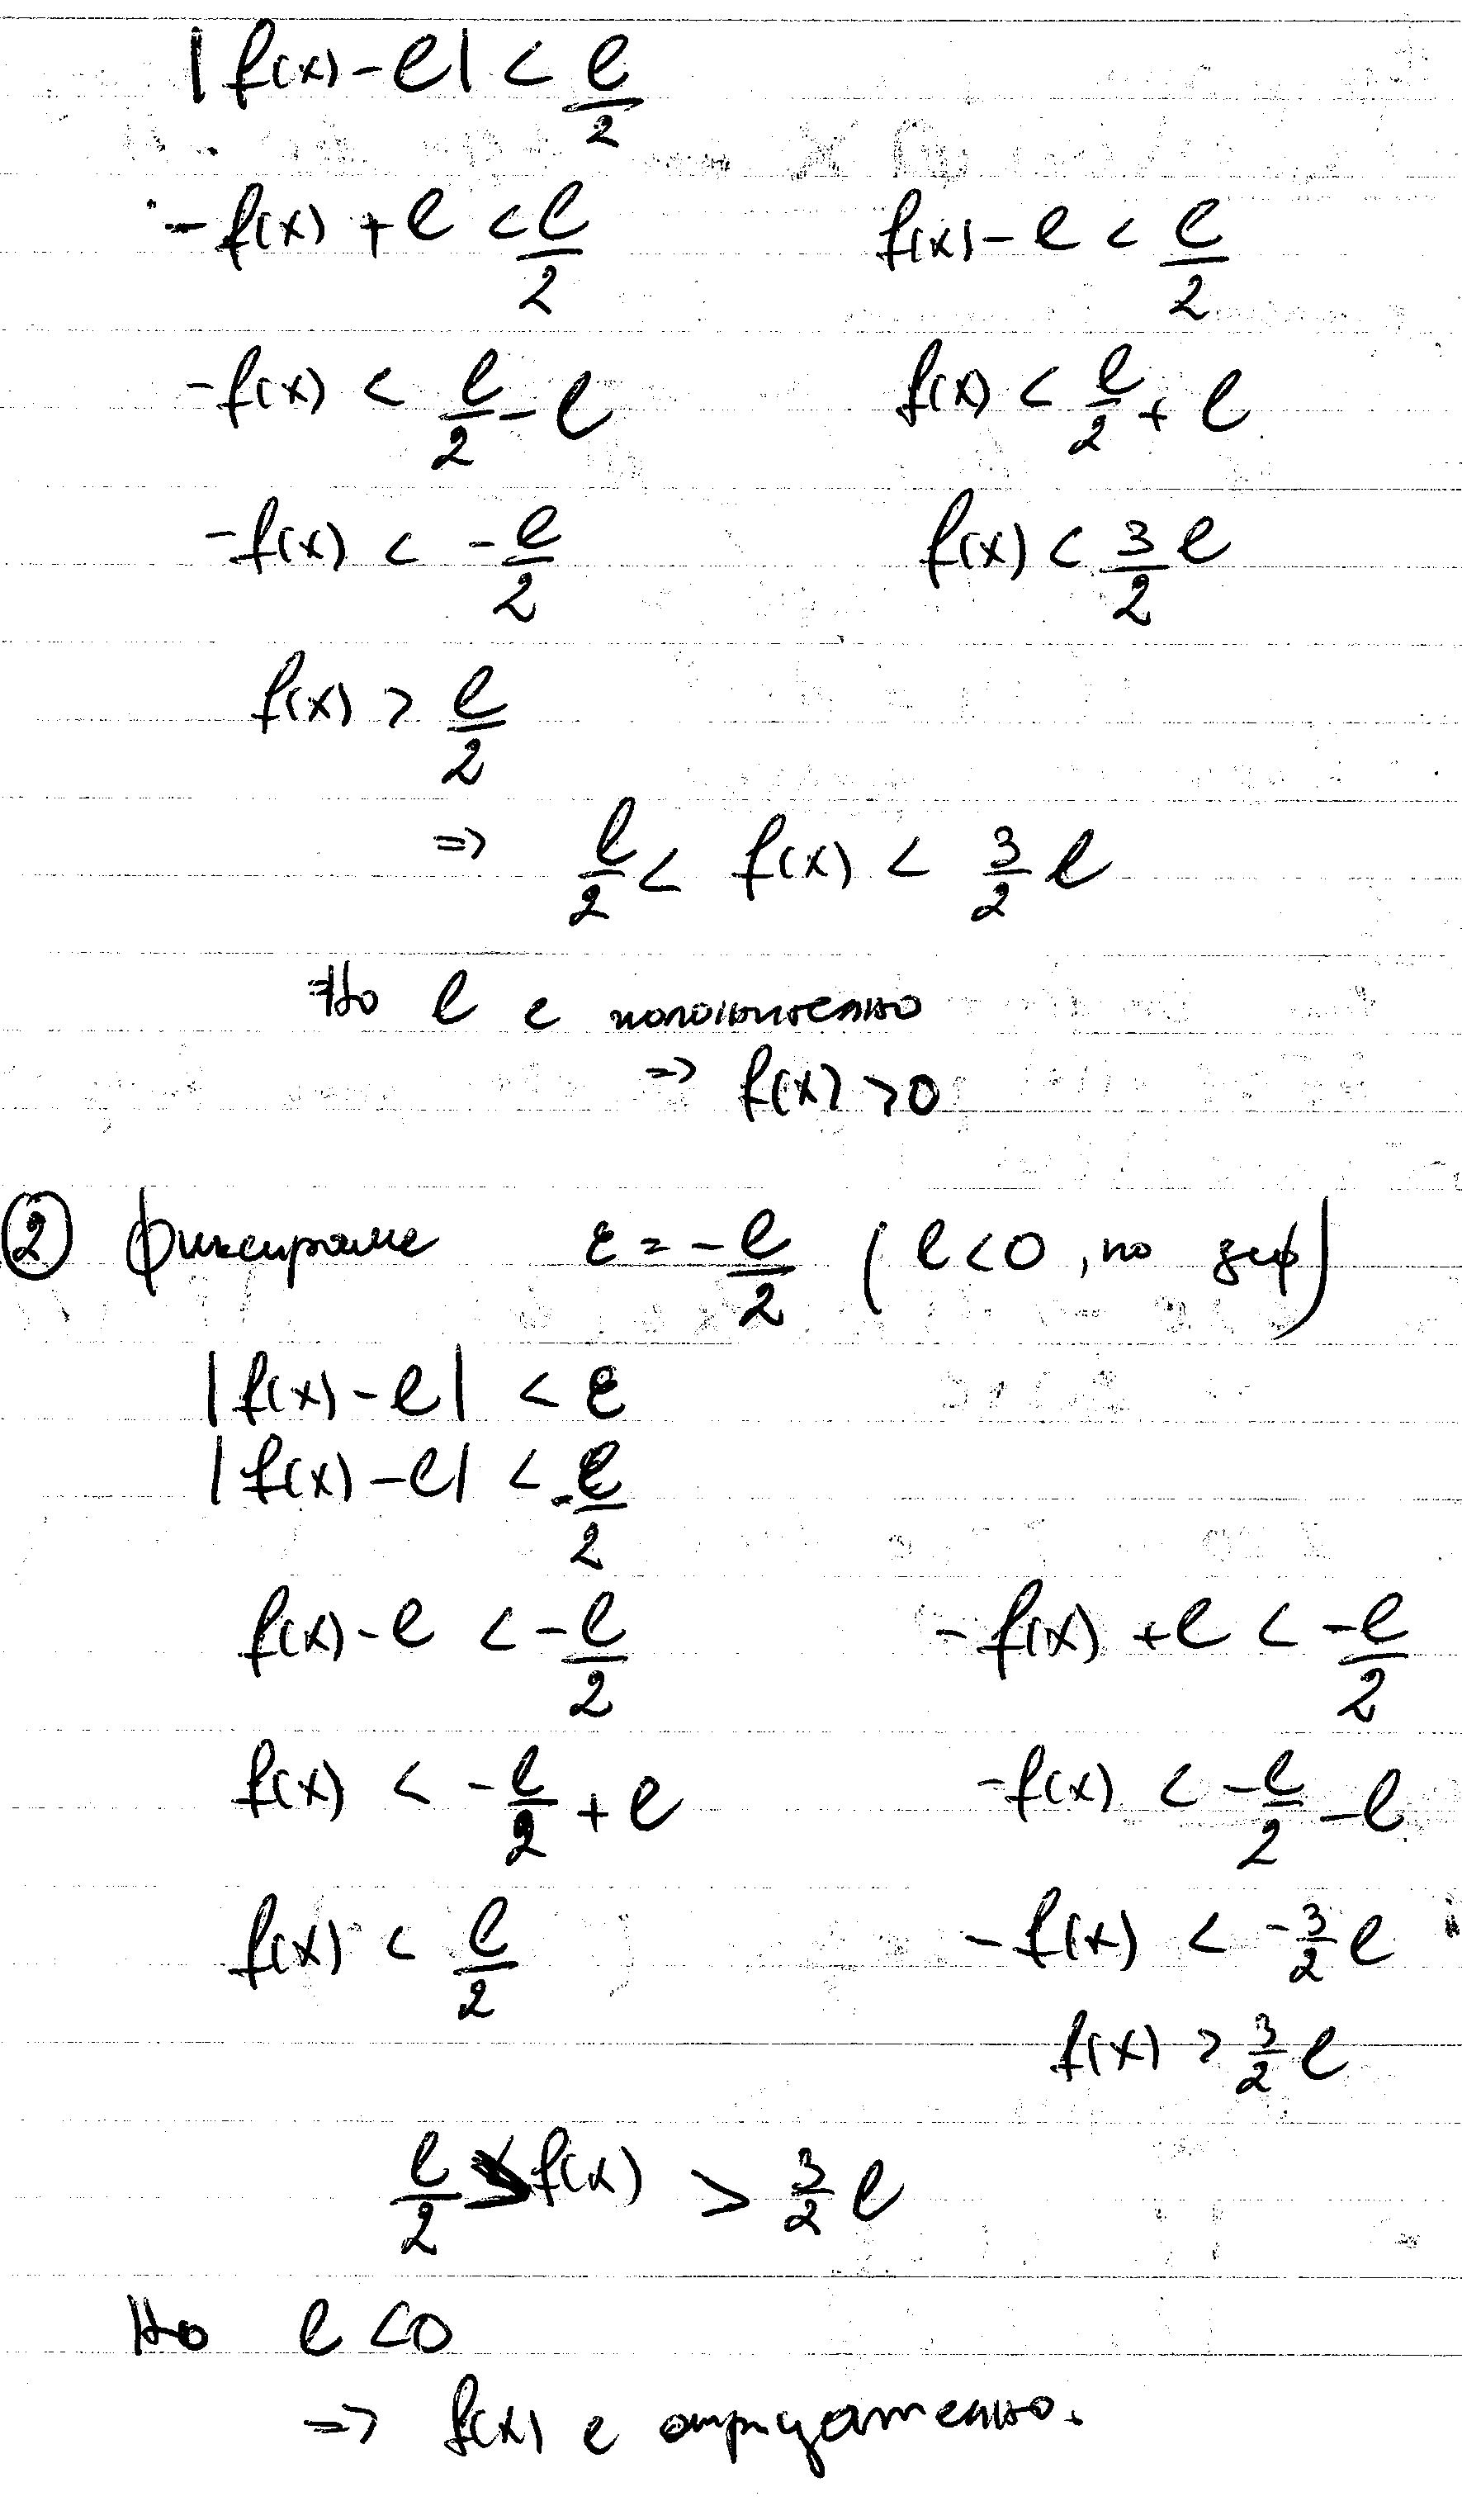 |f(x) - l| < l/2
-f(x) + l < l/2    f(x) - l < l/2
-f(x) < l/2 - l    f(x) < l/2 + l
-f(x) < -l/2    f(x) < 3/2 l
f(x) > l/2
=> l/2 < f(x) < 3/2 l
Но l е положително
=> f(x) > 0
② Фиксираме ε = -l/2 (l < 0, по деф)
|f(x) - l| < ε
|f(x) - l| < -l/2
f(x) - l < -l/2    -f(x) + l < -l/2
f(x) < -l/2 + l    -f(x) < -l/2 - l
f(x) < l/2    -f(x) < -3/2 l
f(x) > 3/2 l
l/2 > f(x) > 3/2 l
Но l < 0
=> f(x) е отрицателно.